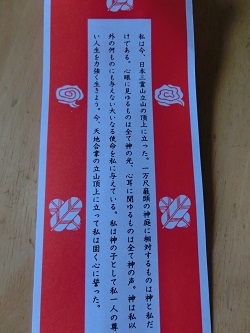 私は今、日本三霊山立山の頂上に立った。一万尺巌頭の神庭に相対するものは神と私だ
けである。心眼に見ゆるものは全て神の光、心耳に聞ゆるものは全て神の声。神は私以
外の何ものにも与えない大いなる使命を私に与えている。私は神の子として私一人の尊
い人生を力強く生きよう。今、天地合掌の立山頂上に立って私は固く心に誓った。